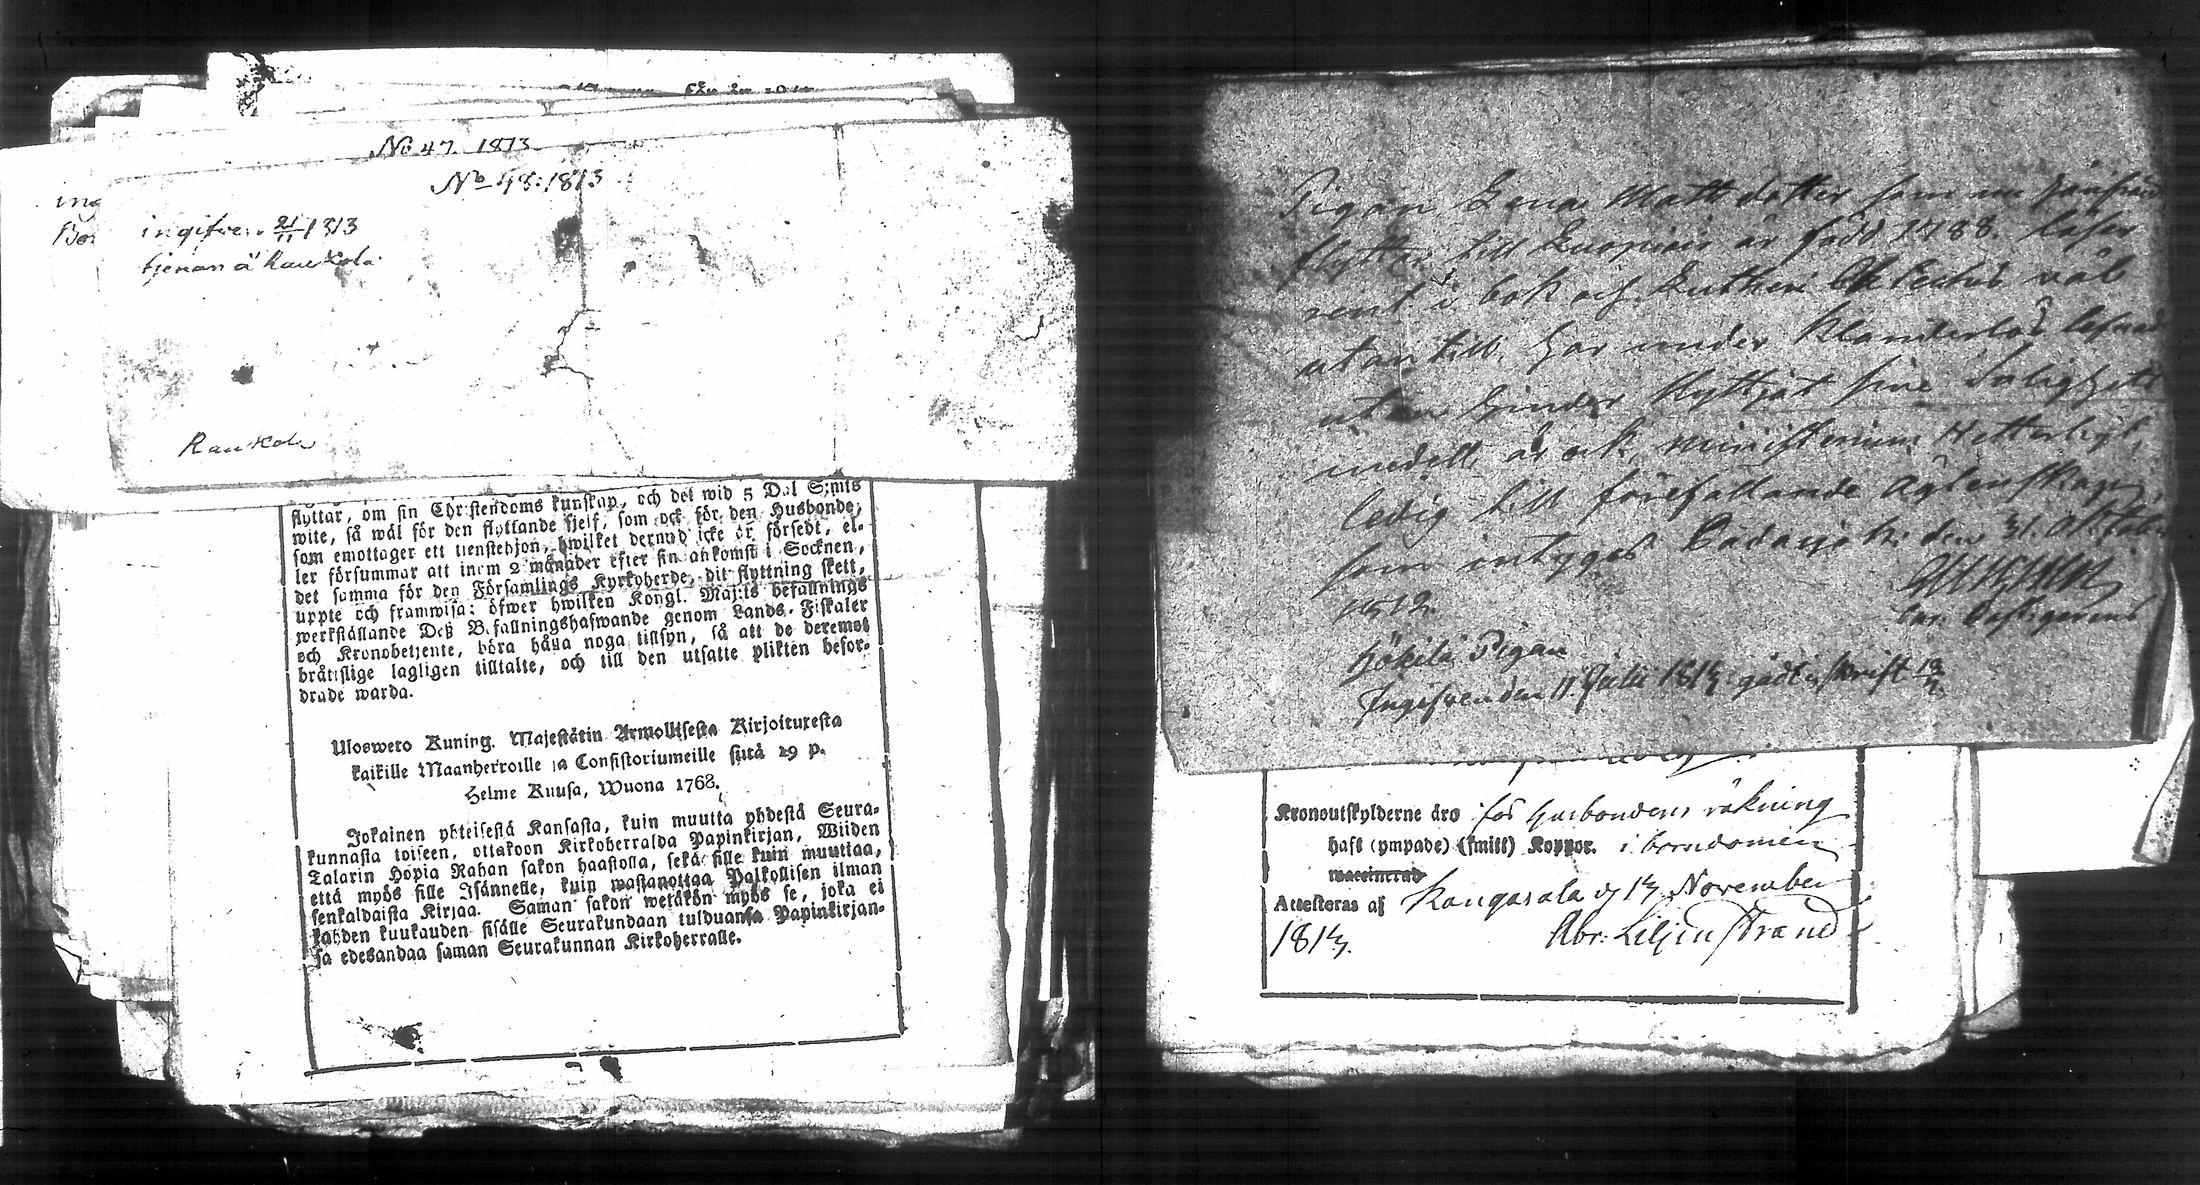 No 47. 1813
No 48: 1813
ingifven 21/11 1813
tjenar å Raukola
Raukola
flyttar, om sin Christendoms kunskap, och det wid 5 Dal S:mts
wite, så wäl för den flyttande sjelf, som ock för den Husbonde,
som emottager ett tienstehjon, hwilket dermed icke är försedt, el-
ler försummar att inom 2 månader efter sin ankomst i Socknen,
det samma för den Församlings Kyrkoherde, dit flyttning skett,
uppte och framwisa: öfwer hwilken Kongl. Maj:ts befallnings
werkställande Deß B.fallningshafwande genom Lands-Fiskaler
och Kronobetjente, böra hålla noga tillsyn, så att de deremot
bråtislige lagligen tilltalte, och till den utsatte plikten befor-
drade warda.
Ulosweto Kuning. Majestätin Armollisesta Kirjoituxesta
kaikille Maanherroille ja Consistoriumeille siitä 29 p.
Helme Kuusa, Wuona 1763.
Jokainen yhteisestä Kansasta, kuin muutta yhdestä Seura-
kunnasta toiseen, ottakoon Kirkoherralda Papinkirjan, Wiiden
Talarin Hopia Rahan sakon haastolla, sekä sille kuin muuttaa,
että myös sille Isännelle, kuin wastanottaa Palkollisen ilman
senkaldaista Kirjaa. Saman sakon wetäkön myös se, joka ei
kahden kuukauden sisälle Seurakundaan tulduansa Papinkirjan-
sa edesandaa saman Seurakunnan Kirkoherralle.
Pigan Lena Matts dotter som nu härifrån
flyttar till Kuopiais är född 1788. läser
rent i bok och Lutheri Cateches väl
utantill, har under klanderlös lefnad
utan hinder flyttjat sine Salighets
medell, är ock ministerium Hetterligt,
ledig till förefallande Äktenskap,
som intygas den 31. October
1812.
Hökilä Pigan
Ingifven den 11. Julii 1814
Kronoutskylderne äro för husbondens räkning
haft (ympade) (smitt) Koppor. i barndomen
Attesteras af Kangasala d 14 November
1814.
Abr: Liljenstrand